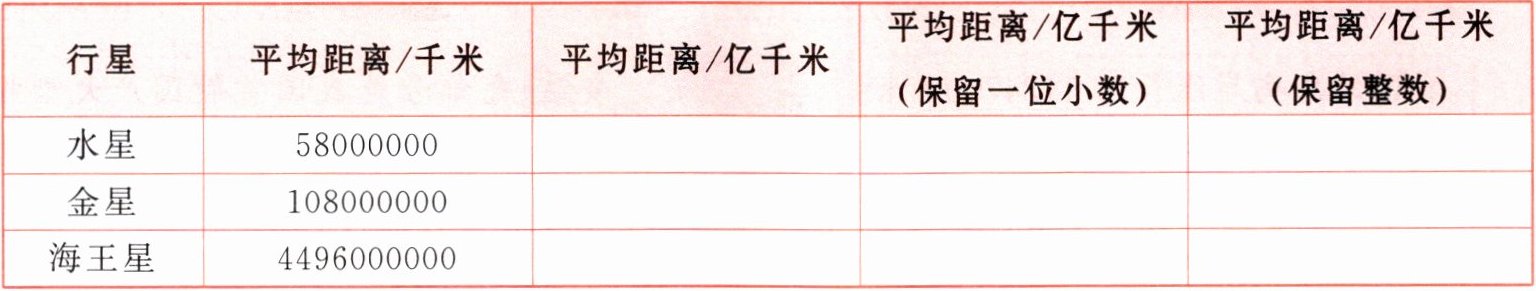 行星 平均距离/千米 平均距离/亿千米 平均距离/亿千米(保留一位小数) 平均距离/亿千米(保留整数)
水星 58000000
金星 108000000
海王星 4496000000